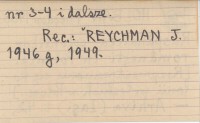 nr 3-4 i dalsze.
Rec.: REYCHMAN J.
1946 g, 1949.